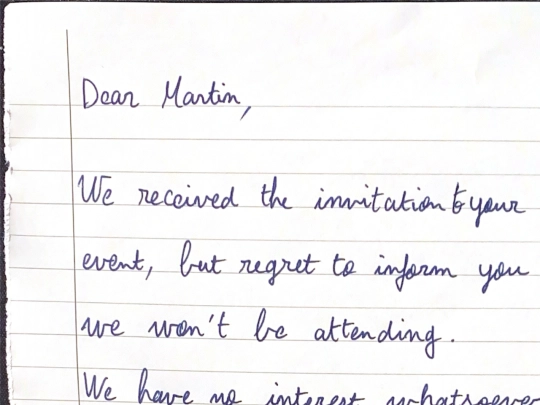 Dear Martin,
We received the invitation to your
event, but regret to inform you
we won't be attending.
We have no interest whatsoever